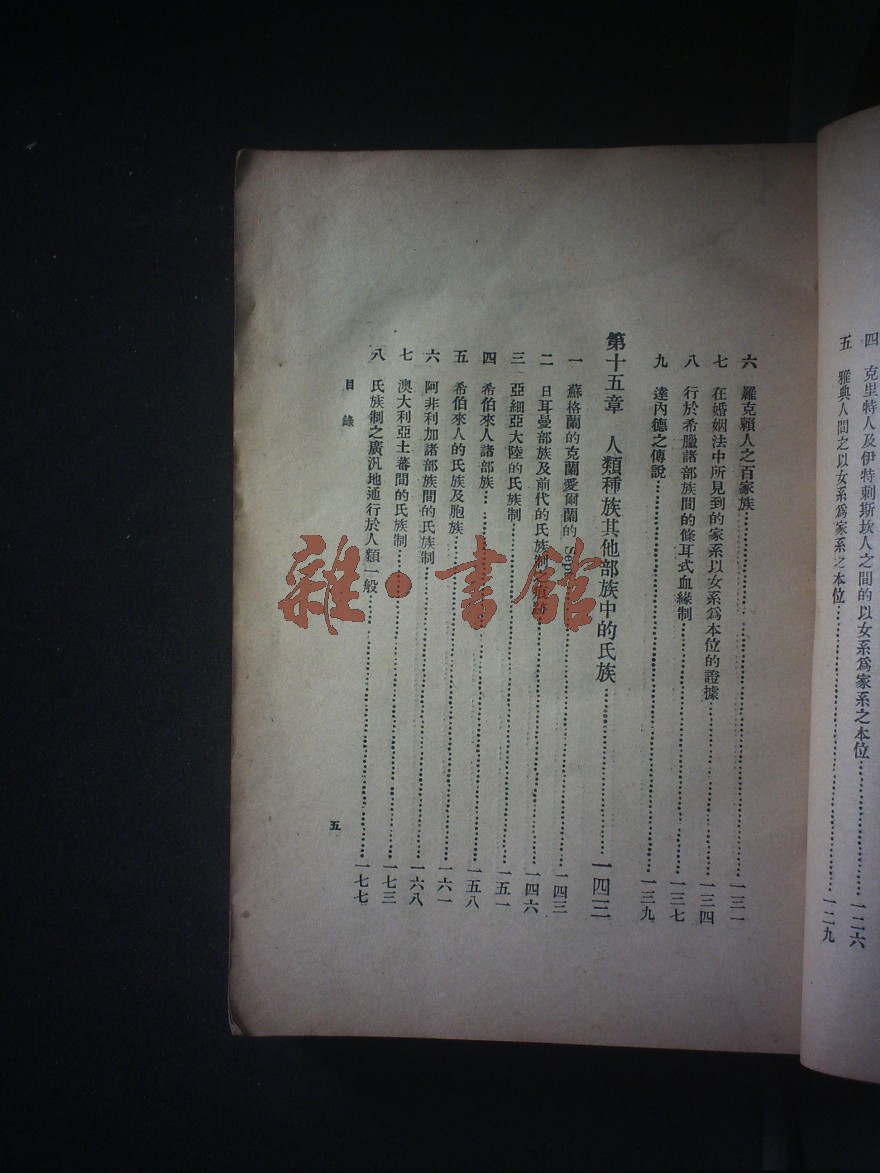 四　克里特人及伊特剌斯坎人之間的以女系爲家系之本位……一二六
五　雅典人間之以女系爲家系之本位……一二九
六　羅克賴人之百家族……一三一
七　在婚姻法中所見到的家系以女系爲本位的證據……一三四
八　行於希臘諸部族間的條耳式血緣制……一三七
九　達內德之傳說……一三九
第十五章　人類種族其他部族中的氏族……一四三
一　蘇格蘭的克蘭愛爾蘭的 Sept……一四三
二　日耳曼部族及前代的氏族制之痕跡……一四六
三　亞細亞大陸的氏族制……一五一
四　希伯來人諸部族……一五八
五　希伯來人的氏族及胞族……一六一
六　阿非利加諸部族間的氏族制……一六八
七　澳大利亞土蕃間的氏族制……一七三
八　氏族制之廣汎地通行於人類一般……一七七
目錄　五
雜·書館